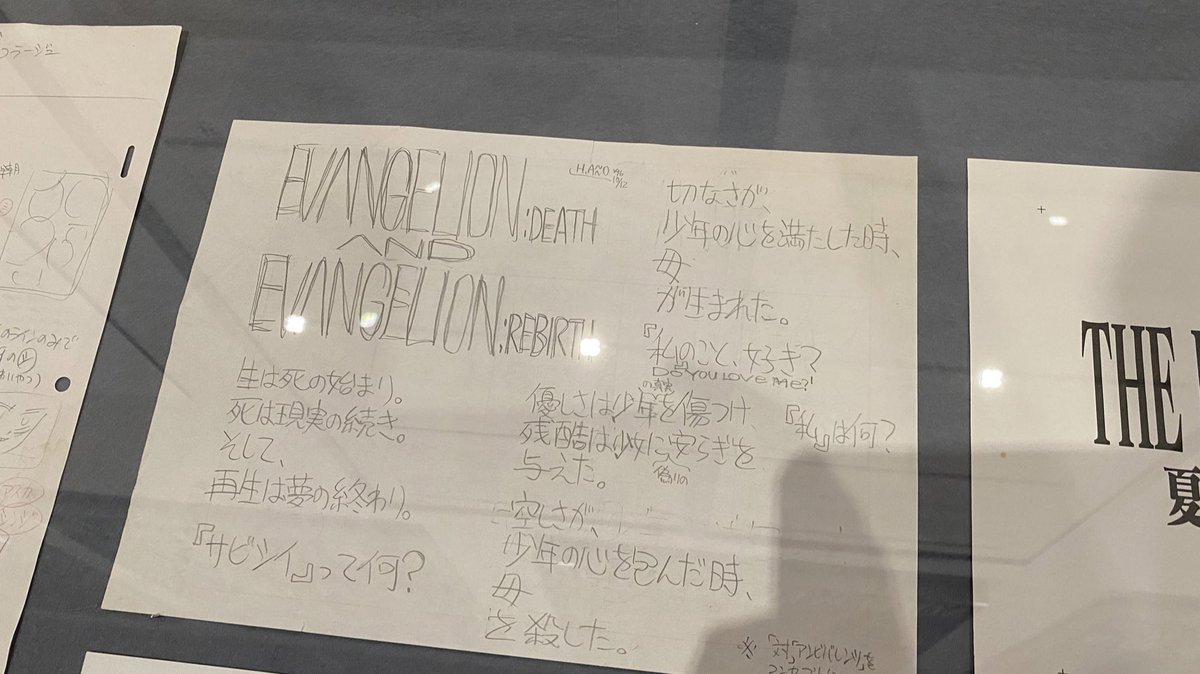 EVANGELION:DEATH
AND
EVANGELION:REBIRTH
H.ANO '96
10/12
生は死の始まり。
死は現実の続き。
そして、
再生は夢の終わり。
『サビシイ』って何?
切なさが、
少年の心を満たした時、
母
が生まれた。
『私のこと、好き?
DO YOU LOVE ME?!
優しさは少年を傷つけ、
残酷は少女に安らぎを
偽りの
与えた。
『私』は何?
空しさが、
少年の心を包んだ時、
母
を殺した。
※『対』アンビバレンツを
THE
夏